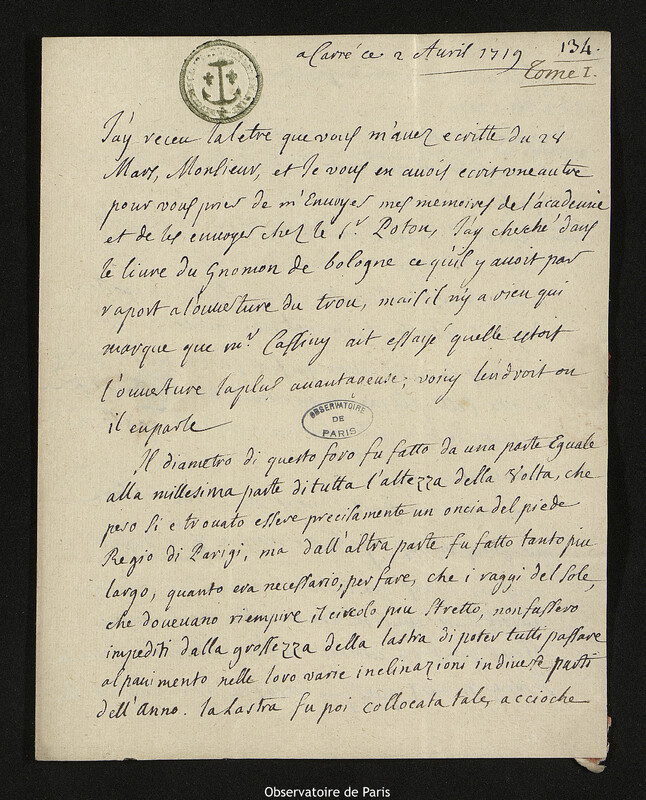 a Carré ce 2 Avril 1719
134.
Tome I.
J'ay receu la letre que vous m'avez ecritte du 28
Mars, Monsieur, et Je vous en avois ecrit une autre
pour vous prier de m'Envoyer mes memoires de l'academie
et de les envoyer chez le Sr. Poton, J'ay cherché dans
le livre du Gnomon de bologne ce qu'il y avoit par
raport a l'ouverture du trou, mais il n'y a rien qui
marque que mr. Cassiny ait essayé quelle estoit
l'ouverture la plus avantageuse; voicy l'endroit ou
il en parle
OBSERVATOIRE
DE
PARIS
Il diametro di questo foro fu fatto da una parte Eguale
alla millesima parte di tutta l'altezza della Volta, che
peso si e trovato essere precisamente un oncia del piede
Regio di Parigi, ma dall'altra parte fu fatto tanto piu
largo, quanto era necessario, per fare, che i raggi del Sole,
che dovevano riempire il circolo piu stretto, non fussero
impediti dalla grossezza della lastra di poter tutti passare
al pavimento nelle loro varie inclinazioni in diverse parti
dell'Anno. la Lastra fu poi collocata tale, accioche
Observatoire de Paris